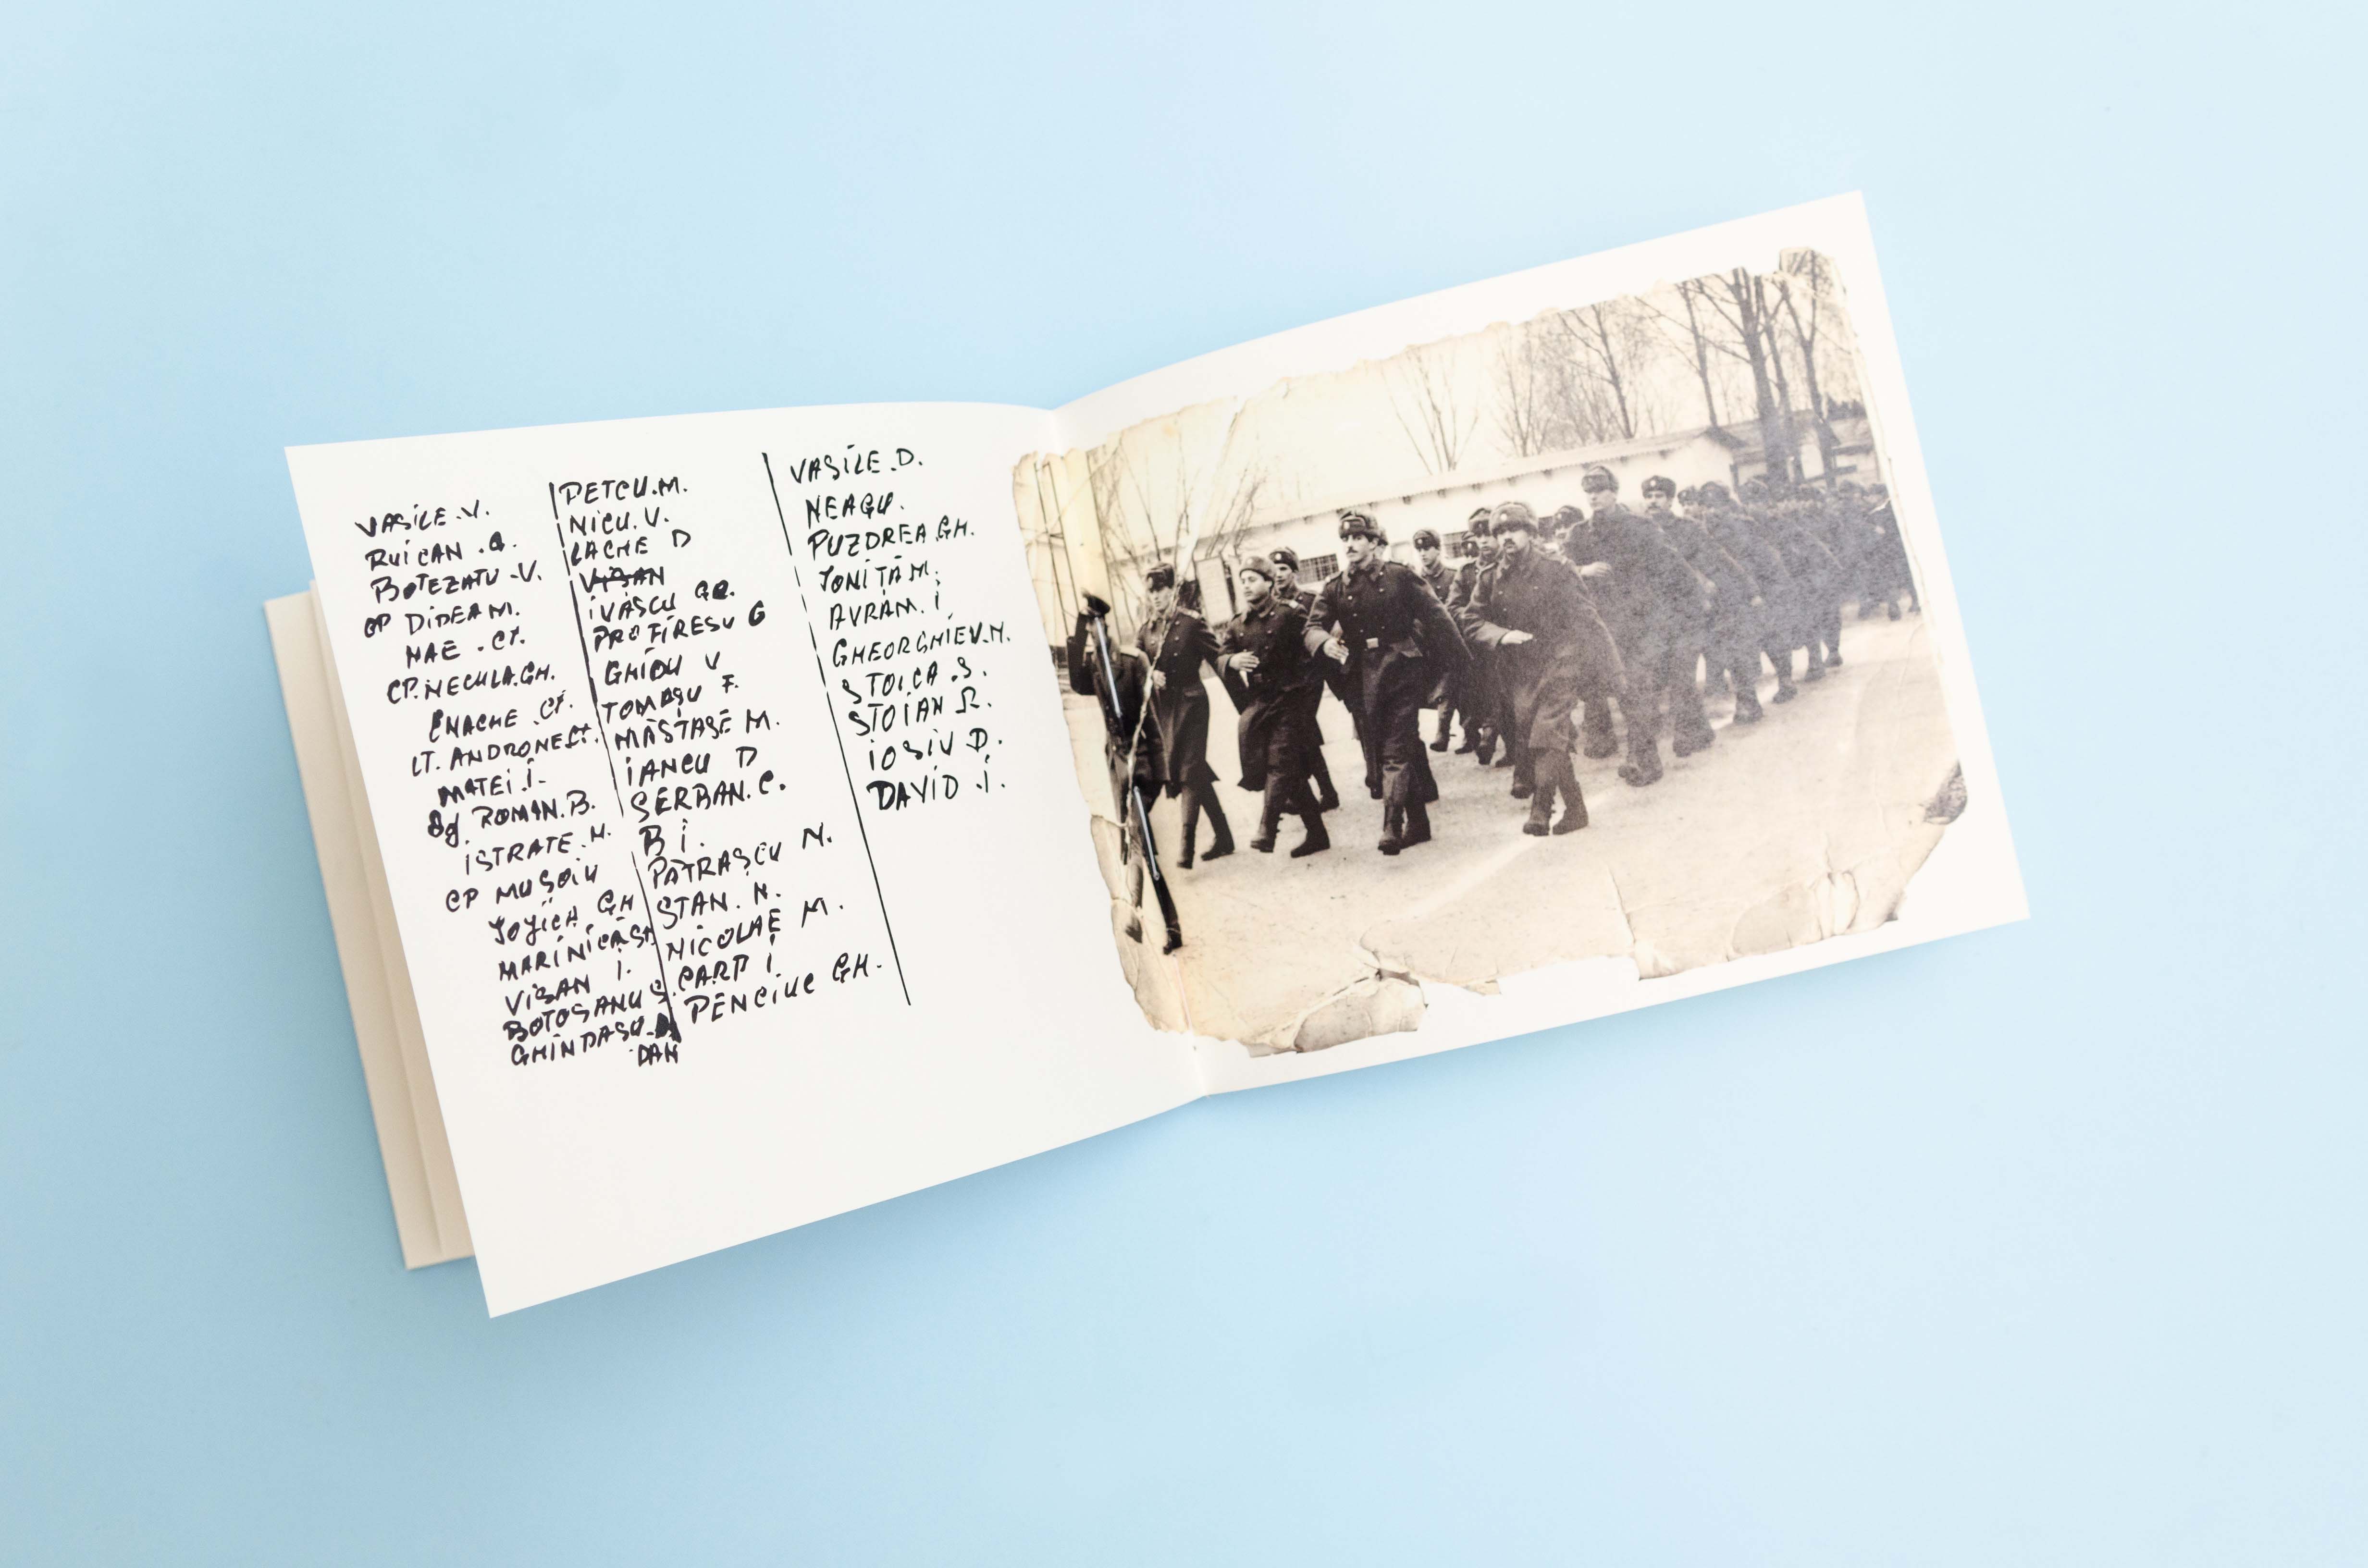 VASILE.V.
RUICAN.G.
BOTEZATU.V.
CP DIDEA M.
NAE.CT.
CP.NECULA.GH.
ENACHE.CT.
LT. ANDRONE.CT.
MATEI.I.
Sg. ROMAN.B.
ISTRATE.N.
CP MUȘOIU
JOJICĂ GH
MARINICĂ ST
VIȘAN I.
BOTOȘANU Ș.
GHINDAȘU.
DAN
PETCU.M.
NICU.V.
LACHE D
VIȘAN
IVAȘCU GR.
PROFIRESU G
GHIDU V
TOMAȘU F.
MĂSTASE M.
IANCU D
ȘERBAN.C.
B I.
PĂTRAȘCU N.
STAN.N.
NICOLAE M.
CARP I.
PENCIUC GH.
VASILE.D.
NEAGU.
PUZDREA.GH.
IONIȚĂ M.
AVRAM.I
GHEORGHIEV.N.
STOICA.S.
STOIAN R.
IOSIV D.
DAVID.I.